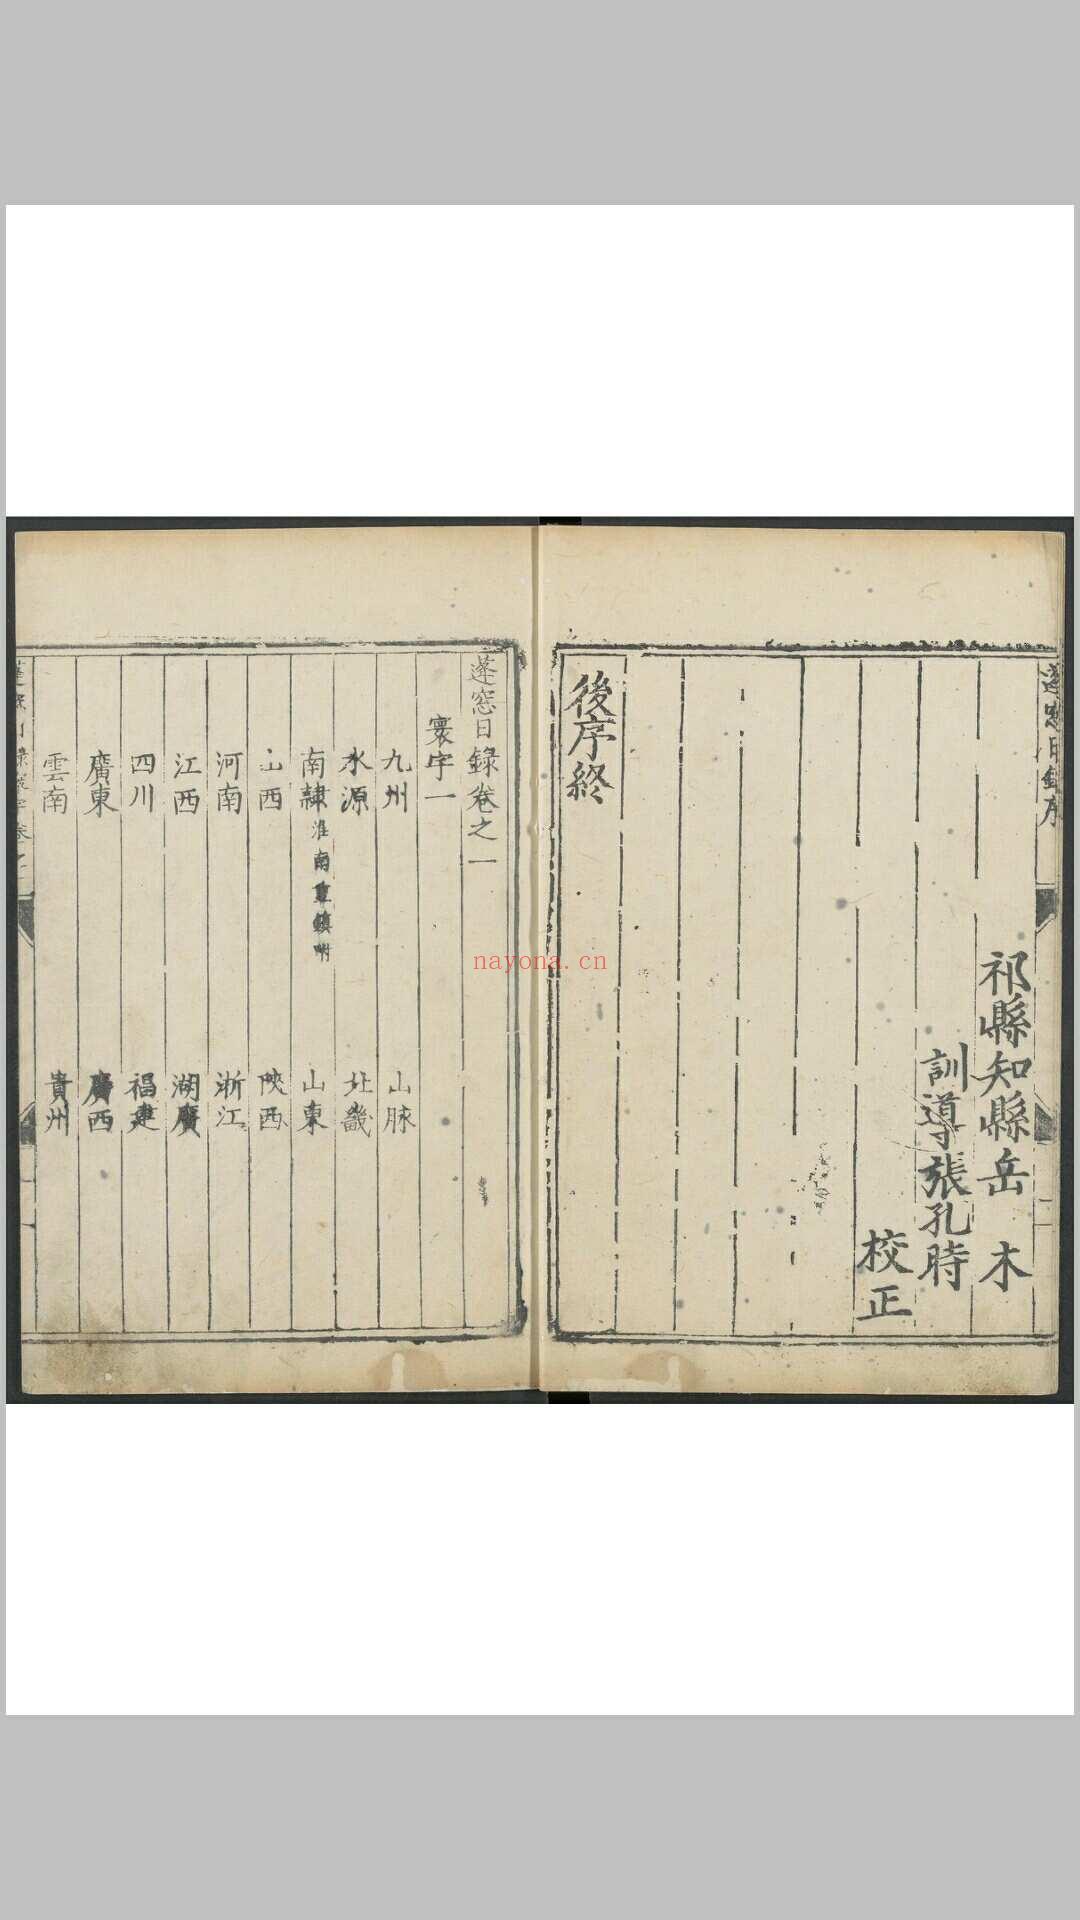 蓬窓日錄序
二
祁縣知縣岳 木
訓導張孔時
校正
後序終
蓬窓日錄卷之一
寰宇一
九州 山脉
水源 北畿
南隷 淮南重鎮附 山東
山西 陜西
河南 浙江
江西 湖廣
四川 福建
廣東 廣西
雲南 貴州
nayona.cn